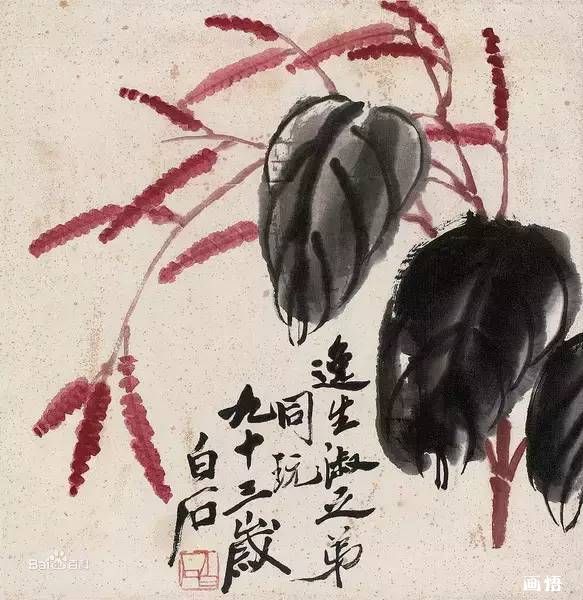 逸生淑之弟
同玩
九十三歲
白石
Bai百科
画悟